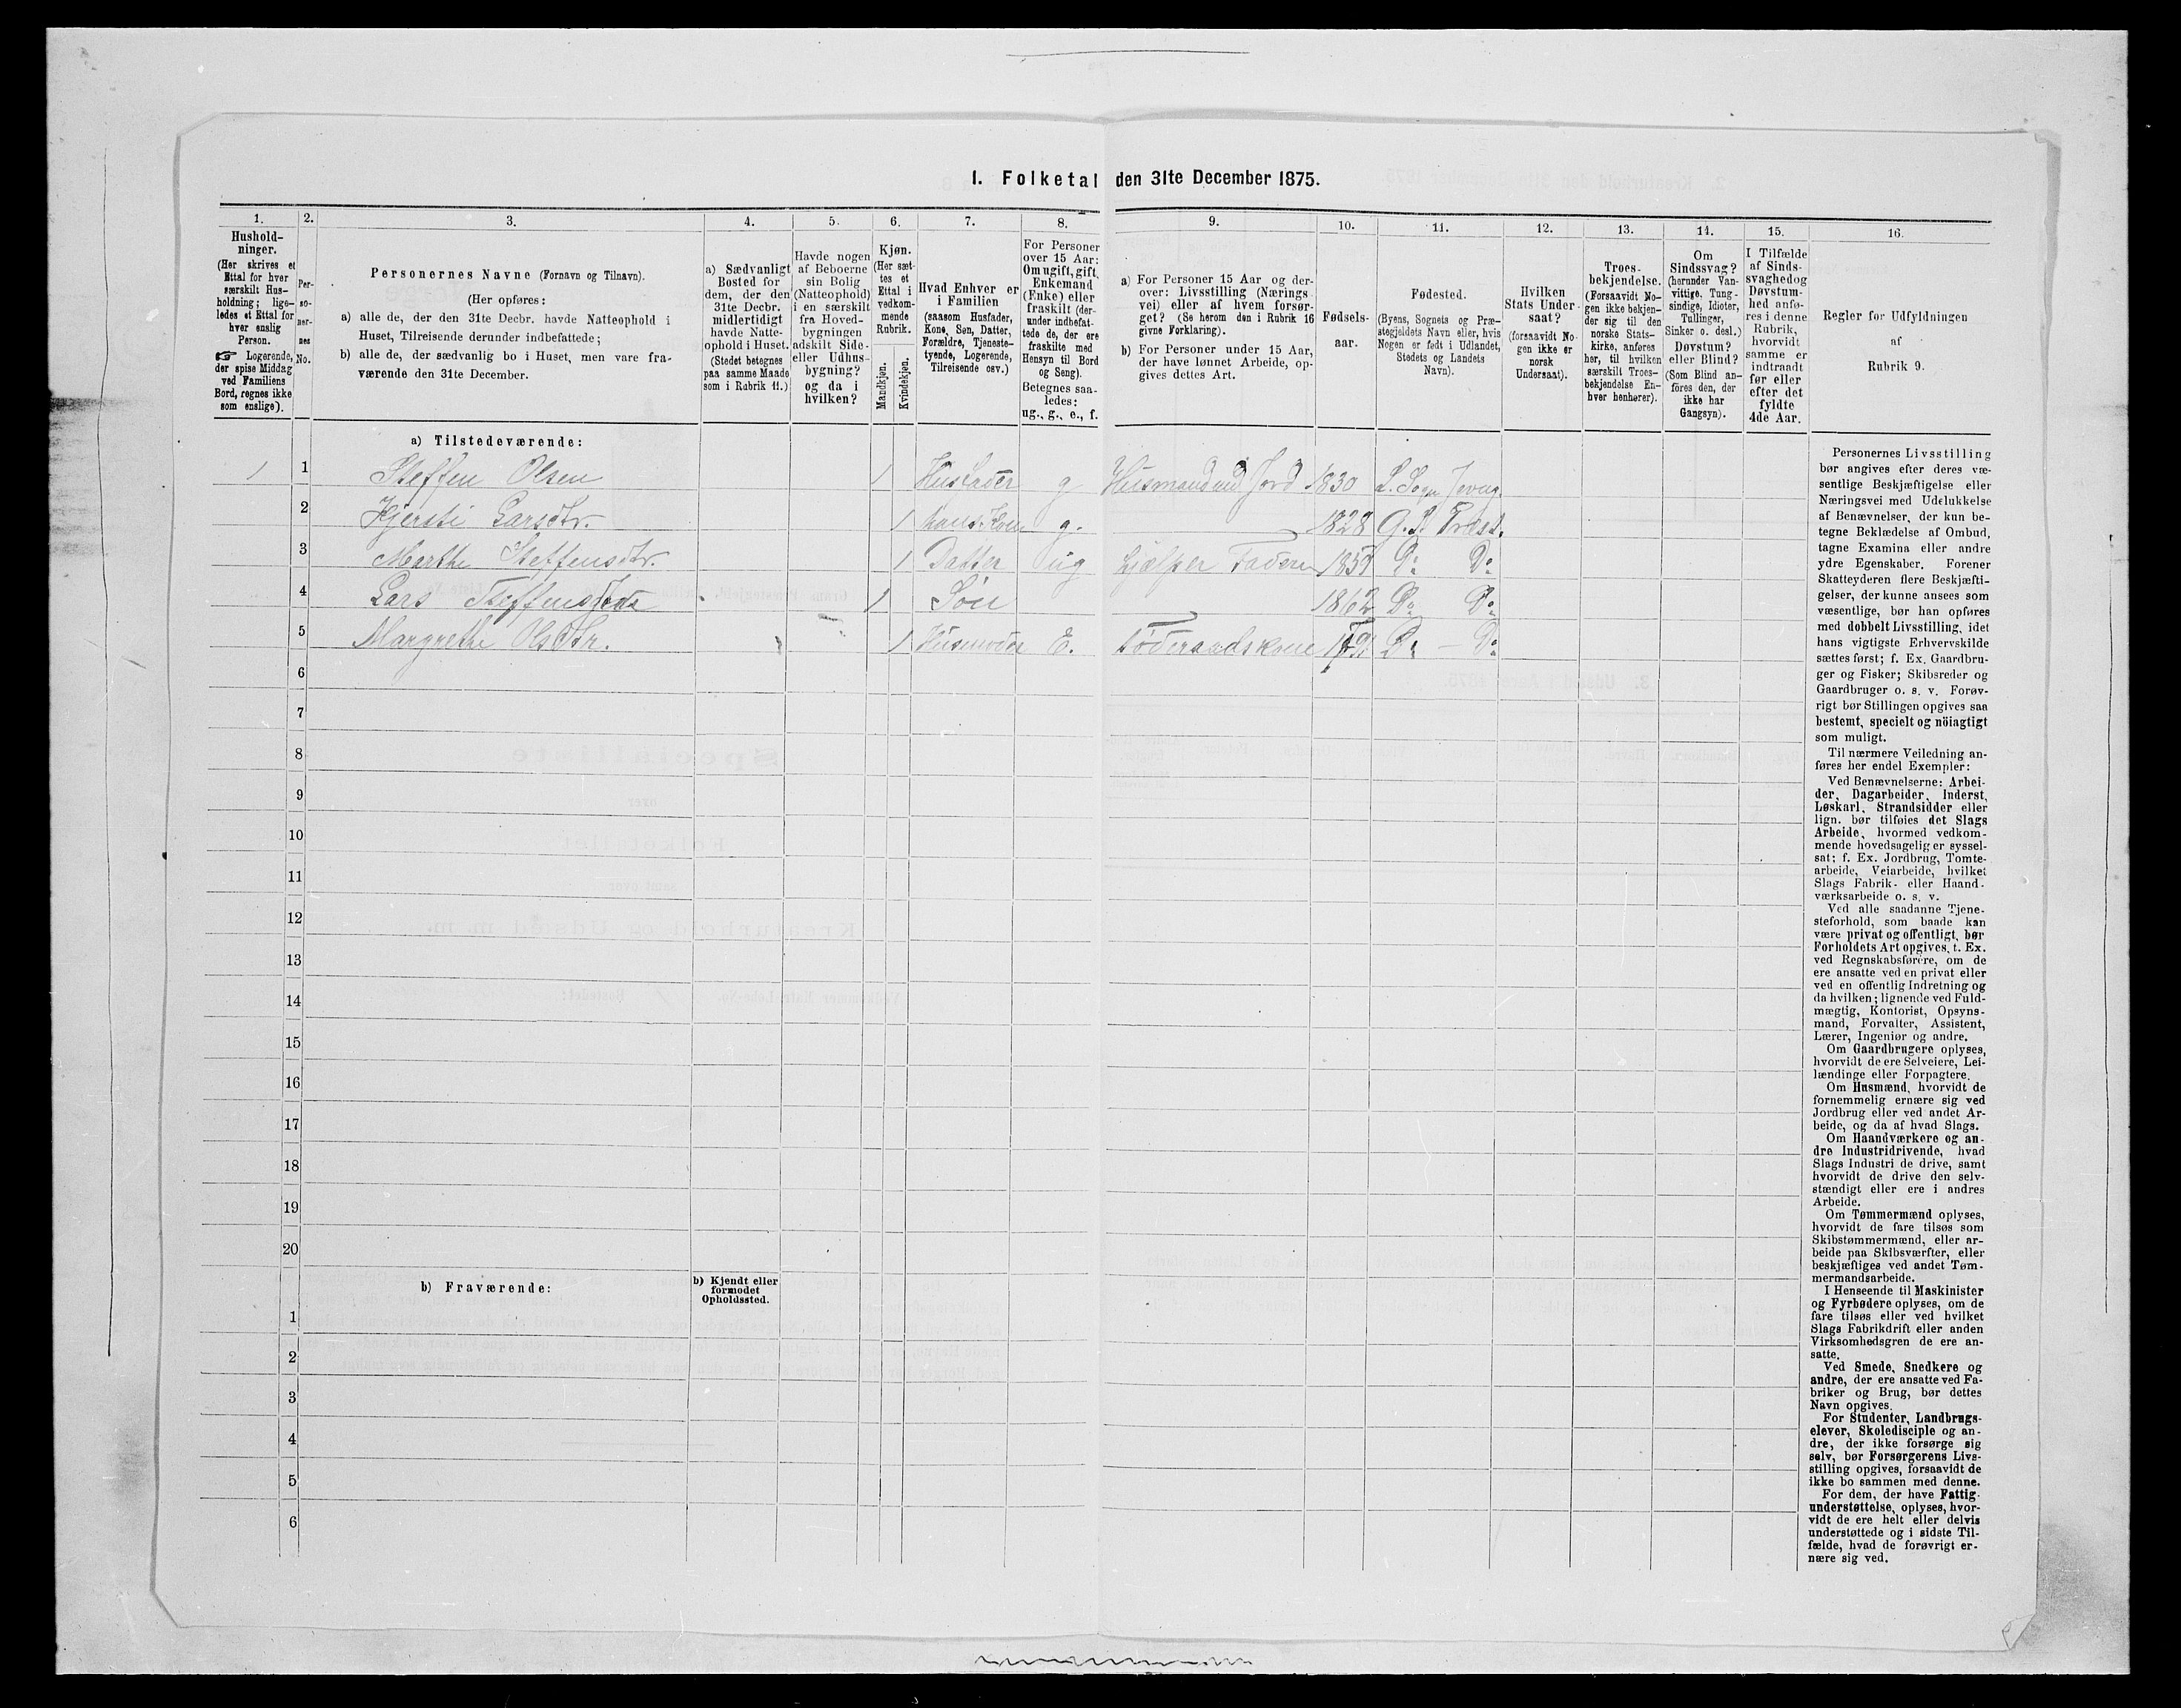 1. Folketal den 31te December 1875.
1.
2.
3.
4.
5.
6.
7.
8.
9.
10.
11.
12.
13.
14.
15.
16.
Hushold-
ninger.
(Her skrives et
Ettal for hver
særskilt Hus-
holdning; lige-
ledes et Ettal for
hver enslig
Person.
☞ Logerende,
der spise Middag
ved Familiens
Bord, regnes ikke
som enslige).
Per-
so-
ner-
nes
No.
Personernes Navne (Fornavn og Tilnavn).
(Her opføres:
a) alle de, der den 31te Decbr. havde Natteophold i
Huset, Tilreisende derunder indbefattede;
b) alle de, der sædvanlig bo i Huset, men vare fra-
værende den 31te December.
a) Sædvanligt
Bosted for
dem, der den
31te Decbr.
midlertidigt
havde Natte-
ophold i Huset.
(Stedet betegnes
paa samme Maade
som i Rubrik 11.)
Havde nogen
af Beboerne
sin Bolig
(Natteophold)
i en særskilt
fra Hoved-
bygningen
adskilt Side-
eller Udhus-
bygning?
og da i
hvilken?
Kjøn.
(Her sæt-
tes et
Ettal i
vedkom-
mende
Rubrik.
Mandkjøn.
Kvindekjøn.
Hvad Enhver er
i Familien
(saasom Husfader,
Kone, Søn, Datter,
Forældre, Tjeneste-
tyende, Logerende,
Tilreisende osv.)
For Personer
over 15 Aar:
Om ugift, gift,
Enkemand
(Enke) eller
fraskilt (der-
under indbefat-
tede de, der ere
fraskilte med
Hensyn til Bord
og Seng).
Betegnes saa-
ledes:
ug., g., e., f.
a) For Personer 15 Aar og der-
over: Livsstilling (Nærings-
vei) eller af hvem forsør-
get? (Se herom den i Rubrik 16
givne Forklaring).
b) For Personer under 15 Aar,
der have lønnet Arbeide, op-
gives dettes Art.
Fødsels-
aar.
Fødested.
(Byens, Sognets og Præ-
stegjeldets Navn eller, hvis
Nogen er født i Udlandet,
Stedets og Landets
Navn).
Hvilken
Stats Under-
saat?
(forsaavidt No-
gen ikke er
norsk
Undersaat).
Troes-
bekjendelse.
(Forsaavidt No-
gen ikke bekjen-
der sig til den
norske Stats-
kirke, anføres
her, til hvilken
særskilt Troes-
bekjendelse En-
hver henhører).
Om
Sindssvag?
(herunder Van-
vittige, Tung-
sindige, Idioter,
Tullinger,
Sinker o. desl.)
Døvstum?
eller Blind?
(Som Blind an-
føres den, der
ikke har
Gangsyn).
I Tilfælde
af Sinds-
svaghedog
Døvstum-
hed anfø-
res i denne
Rubrik,
hvorvidt
samme er
indtraadt
før eller
efter det
fyldte
4de Aar.
Regler for Udfyldningen
af
Rubrik 9.
a) Tilstedeværende:
1 1 Steffen Olsen 1 Husfader g Husmand med Jord 1830 L. Sogn
2 Kjersti Larsdtr. 1 hans Kone g. 1828 G. P. Præst.
3 Marthe Steffensdtr. 1 Datter ug hjælper Faderen 1859 Do Do
4 Lars 1 Søn 1862 Do Do
5 Margrethe Olsdtr. 1 Husmoder E. Føderaadskone Do - Do
6
7
8
9
10
11
12
13
14
15
16
17
18
19
20
b) Fraværende:
b) Kjendt eller
formodet
Opholdssted.
1
2
3
4
5
6
Personernes Livsstilling
bør angives efter deres væ-
sentlige Beskjæftigelse eller
Næringsvei med Udelukkelse
af Benævnelser, der kun be-
tegne Beklædelse af Ombud,
tagne Examina eller andre
ydre Egenskaber. Forener
Skatteyderen flere Beskjæfti-
gelser, der kunne ansees som
væsentlige, bør han opføres
med dobbelt Livsstilling, idet
hans vigtigste Erhvervskilde
sættes først; f. Ex. Gaardbru-
ger og Fisker; Skibsreder og
Gaardbruger o. s. v. Forøv-
rigt bør Stillingen opgives saa
bestemt, specielt og nöiagtigt
som muligt.
Til nærmere Veiledning an-
føres her endel Exempler:
Ved Benævnelserne: Arbei-
der, Dagarbeider, Inderst,
Løskarl, Strandsidder eller
lign. bør tilføies det Slags
Arbeide, hvormed vedkom-
mende hovedsagelig er syssel-
sat; f. Ex. Jordbrug, Tomte-
arbeide, Veiarbeide, hvilket
Slags Fabrik- eller Haand-
værksarbeide o. s. v.
Ved alle saadanne Tjene-
steforhold, som baade kan
være privat og offentligt, bør
Forholdets Art opgives, t. Ex.
ved Regnskabsførere, om de
ere ansatte ved en privat eller
ved en offentlig Indretning og
da hvilken; lignende ved Fuld-
mægtig, Kontorist, Opsyns-
mand, Forvalter, Assistent,
Lærer, Ingeniør og andre.
Om Gaardbrugere oplyses,
hvorvidt de ere Selveiere, Lei-
lændinge eller Forpagtere.
Om Husmænd, hvorvidt de
fornemmelig ernære sig ved
Jordbrug eller ved andet Ar-
beide, og da af hvad Slags.
Om Haandværkere og an-
dre Industridrivende, hvad
Slags Industri de drive, samt
hvorvidt de drive den selv-
stændigt eller ere i andres
Arbeide.
Om Tømmermænd oplyses,
hvorvidt de fare tilsøs som
Skibstømmermænd, eller ar-
beide paa Skibsværfter, eller
beskjæftiges ved andet Tøm-
mermandsarbeide.
I Henseende til Maskinister
og Fyrbødere oplyses, om de
fare tilsøs eller ved hvilket
Slags Fabrikdrift eller anden
Virksomhedsgren de ere an-
satte.
Ved Smede, Snedkere og
andre, der ere ansatte ved Fa-
briker og Brug, bør dettes
Navn opgives.
For Studenter, Landbrugs-
elever, Skoledisciple og an-
dre, der ikke forsørge sig
selv, bør Forsørgerens Livs-
stilling opgives, forsaavidt de
ikke bo sammen med denne.
For dem, der have Fattig-
understøttelse, oplyses, hvor-
vidt de ere helt eller delvis
understøttede og i sidste Til-
fælde, hvad de forøvrigt er-
nære sig ved.